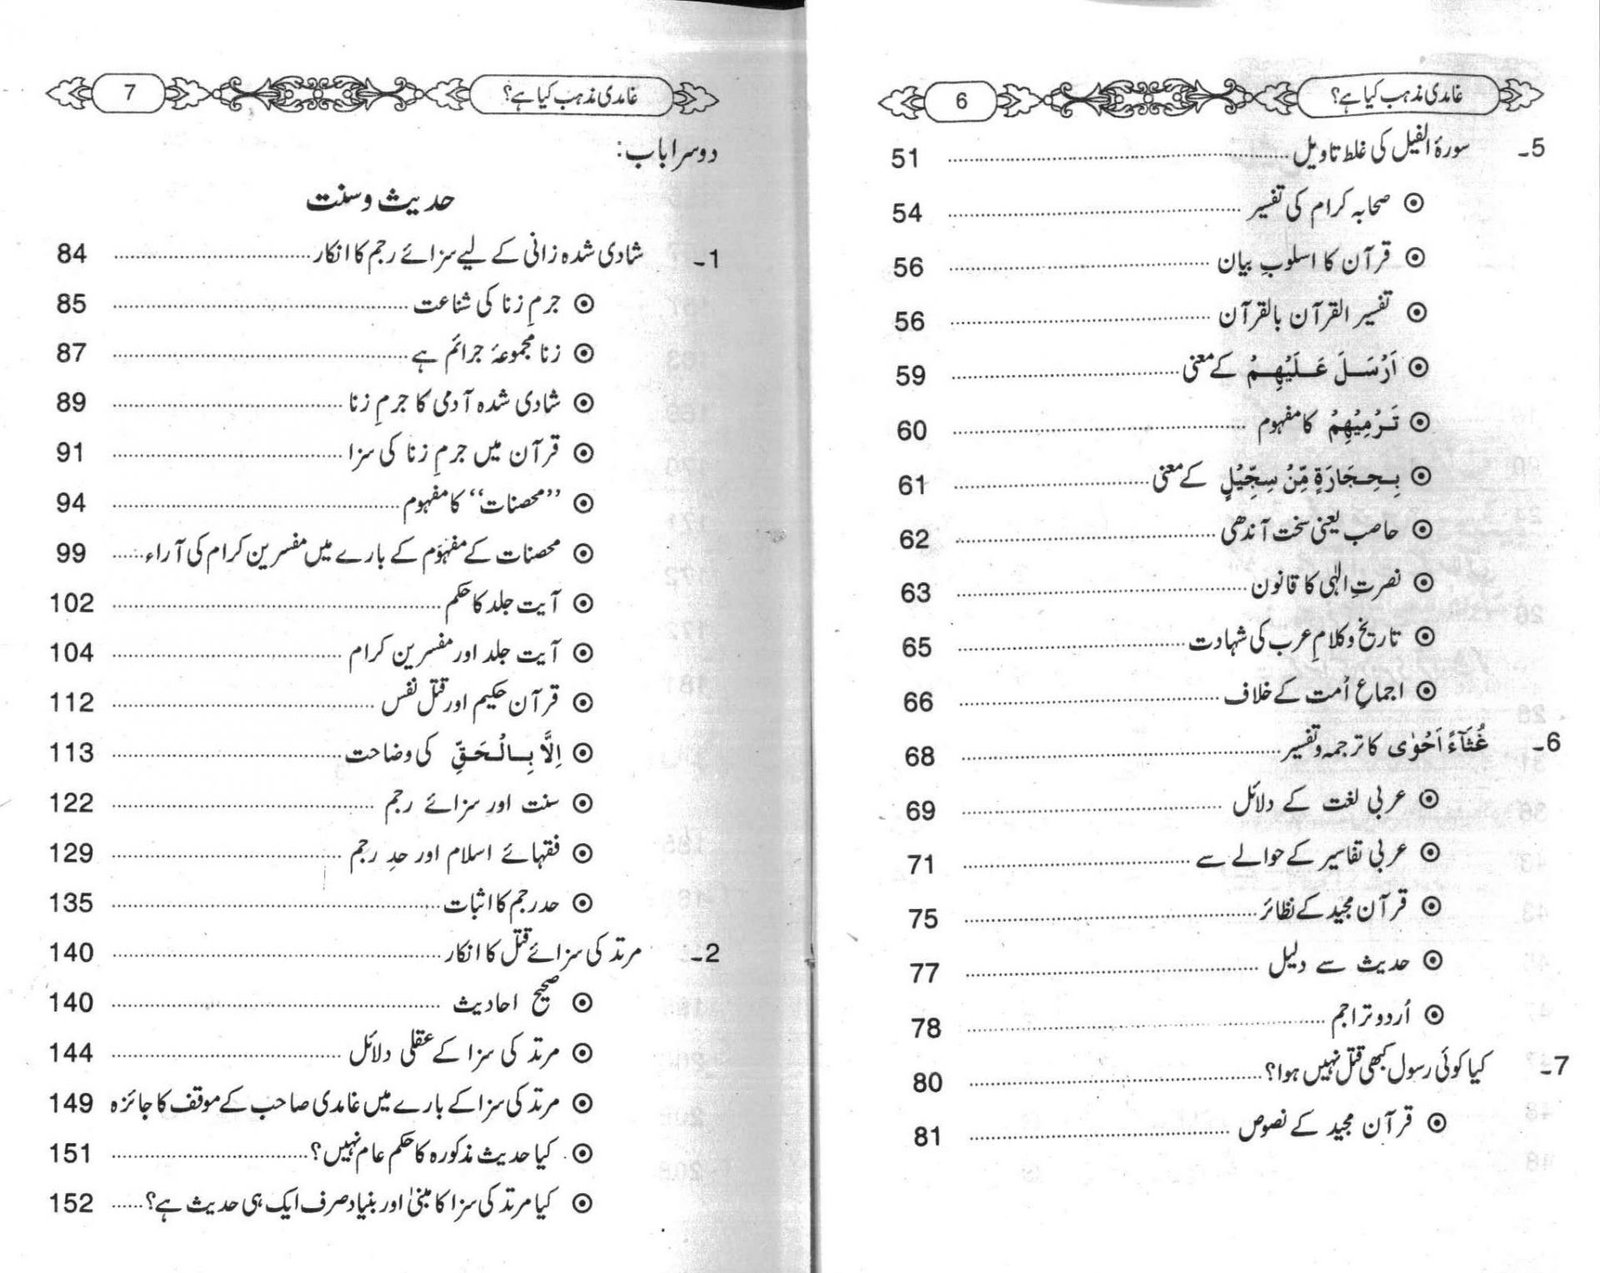 غامدی مذہب کیا ہے؟ 6
5۔ سورۂ الفیل کی غلط تاویل 51
صحابہ کرام کی تفسیر 54
قرآن کا اسلوبِ بیان 56
تفسیر القرآن بالقرآن 56
اَرْسَلَ عَلَيْهِمْ کے معنی 59
تَرْمِيْهِمْ کا مفہوم 60
بِحِجَارَةٍ مِّنْ سِجِّيْلٍ کے معنی 61
حاصب یعنی سخت آندھی 62
نصرتِ الٰہی کا قانون 63
تاریخ و کلامِ عرب کی شہادت 65
اجماعِ اُمت کے خلاف 66
6۔ غُثَآءً اَحْوٰى کا ترجمہ و تفسیر 68
عربی لغت کے دلائل 69
عربی تفاسیر کے حوالے سے 71
قرآن مجید کے نظائر 75
حدیث سے دلیل 77
اُردو تراجم 78
7۔ کیا کوئی رسول کبھی قتل نہیں ہوا؟ 80
قرآن مجید کے نصوص 81
غامدی مذہب کیا ہے؟ 7
دوسرا باب:
حدیث و سنت
1۔ شادی شدہ زانی کے لیے سزائے رجم کا انکار 84
جرمِ زنا کی شناعت 85
زنا مجموعۂ جرائم ہے 87
شادی شدہ آدمی کا جرمِ زنا 89
قرآن میں جرمِ زنا کی سزا 91
”محصنات“ کا مفہوم 94
محصنات کے مفہوم کے بارے میں مفسرین کرام کی آراء 99
آیت جلد کا حکم 102
آیت جلد اور مفسرین کرام 104
قرآن حکیم اور قتل نفس 112
اِلَّا بِالْحَقِّ کی وضاحت 113
سنت اور سزائے رجم 122
فقہائے اسلام اور حدِ رجم 129
حد رجم کا اثبات 135
2۔ مرتد کی سزائے قتل کا انکار 140
صحیح احادیث 140
مرتد کی سزا کے عقلی دلائل 144
مرتد کی سزا کے بارے میں غامدی صاحب کے موقف کا جائزہ 149
کیا حدیث مذکورہ کا حکم عام نہیں؟ 151
کیا مرتد کی سزا کا مبنیٰ اور بنیاد صرف ایک ہی حدیث ہے؟ 152